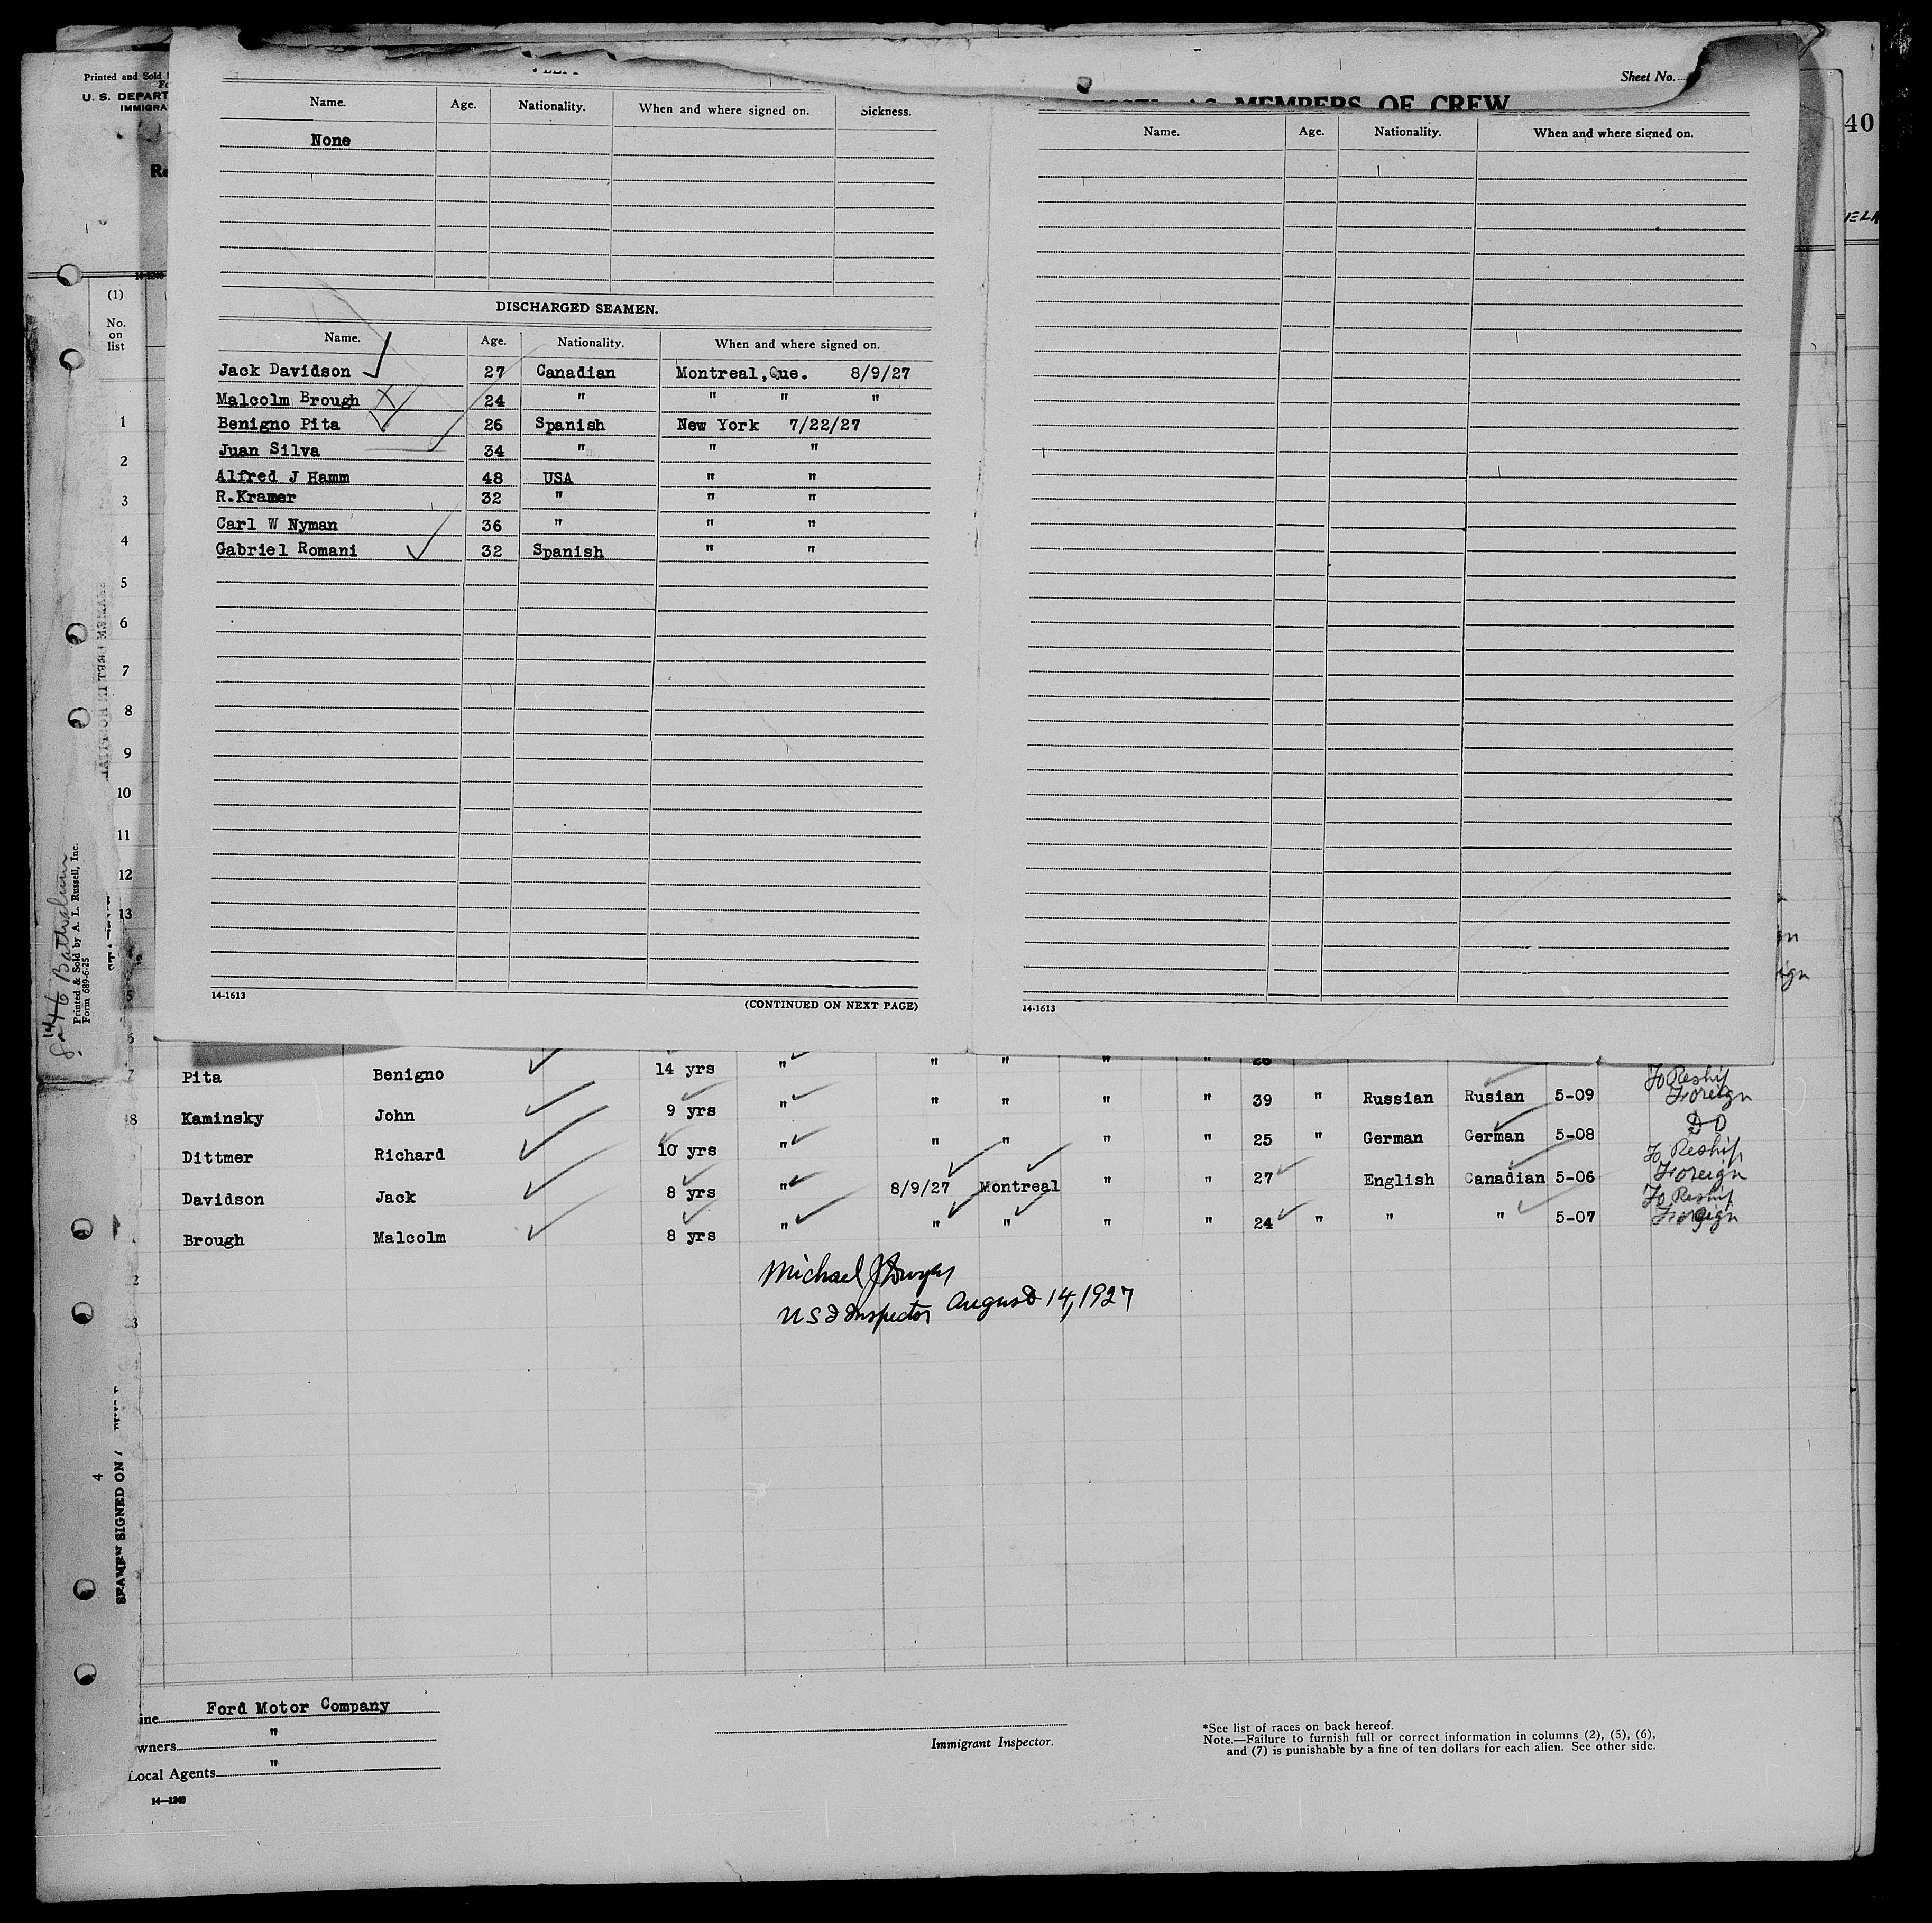 Printed and Sold
U. S. DEPART
IMMIGRA
Re
Sheet No.
MEMBERS OF CREW
40
Name. Age. Nationality. When and where signed on. Sickness.
None
Name. Age. Nationality. When and where signed on.
14-1240
(1)
No.
on
list
DISCHARGED SEAMEN.
Name. Age. Nationality. When and where signed on.
Jack Davidson 27 Canadian Montreal, Que. 8/9/27
Malcolm Brough 24 " " " "
Benigno Pita 26 Spanish New York 7/22/27
Juan Silva 34 " " "
Alfred J Hamm 48 USA " "
R.Kramer 32 " " "
Carl W Nyman 36 " " "
Gabriel Romani 32 Spanish " "
1
2
3
4
5
6
7
8
9
10
11
12
13
Printed & Sold by A. L. Russell, Inc.
Form 689-6-25
14-1613
(CONTINUED ON NEXT PAGE)
14-1613
Pita Benigno 14 yrs " " " " " 26
To Reship
Foreign
Kaminsky John 9 yrs " " " " " 39 " Russian Rusian 5-09
Dittmer Richard 10 yrs " " " " " 25 " German German 5-08 DO
To Reship
Foreign
Davidson Jack 8 yrs " 8/9/27 Montreal " " 27 English Canadian 5-06
To Reship
Foreign
Brough Malcolm 8 yrs " " " " " 24 " " " 5-07
Michael J Dwyer
U S I Inspector August 14, 1927
SEAMEN SIGNED ON
4
ine Ford Motor Company
wners "
Local Agents "
14—1240
Immigrant Inspector.
*See list of races on back hereof.
Note.—Failure to furnish full or correct information in columns (2), (5), (6),
and (7) is punishable by a fine of ten dollars for each alien. See other side.